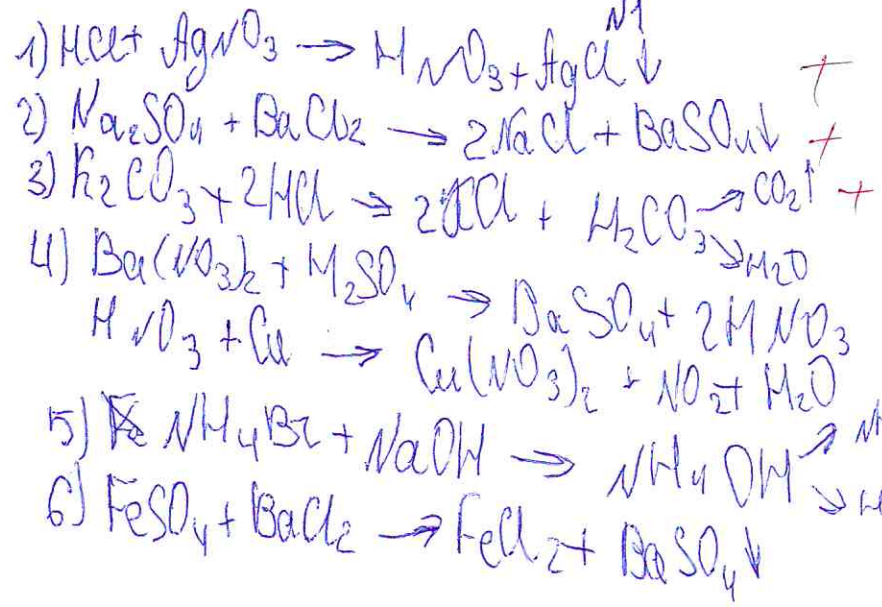 N1
1) HCl + AgNO3 → HNO3 + AgCl↓ +
2) Na2SO4 + BaCl2 → 2NaCl + BaSO4↓ +
3) K2CO3 + 2HCl → 2KCl + H2CO3 → CO2↑ +
↘ H2O
4) Ba(NO3)2 + H2SO4 → BaSO4 + 2HNO3
HNO3 + Cu → Cu(NO3)2 + NO2 + H2O
5) NH4Br + NaOH → NH4OH ↗ NH
↘ H
6) FeSO4 + BaCl2 → FeCl2 + BaSO4↓